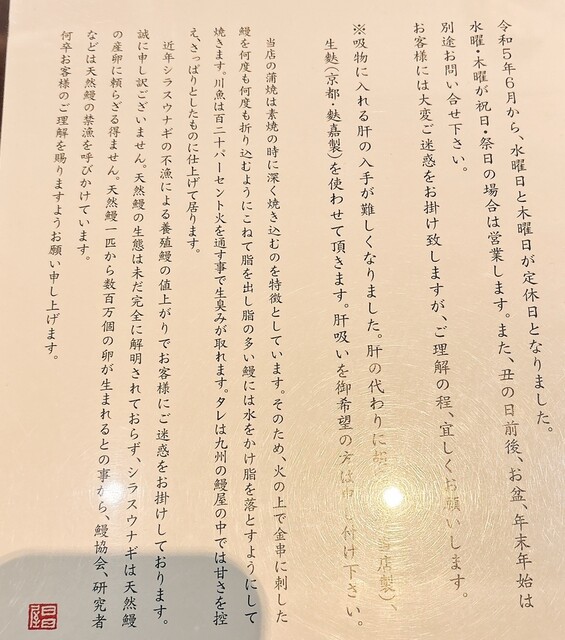 令和5年6月から、水曜日と木曜日が定休日となりました。
水曜・木曜が祝日・祭日の場合は営業します。また、丑の日前後、お盆、年末年始は
別途お問い合せ下さい。
お客様には大変ご迷惑をお掛け致しますが、ご理解の程、宜しくお願いします。
※吸物に入れる肝の入手が難しくなりました。肝の代わりに 当店製)、
生麩(京都・麩嘉製)を使わせて頂きます。肝吸いを御希望の方は申し付け下さい。
当店の蒲焼は素焼の時に深く焼き込むのを特徴としています。そのため、火の上で金串に刺した
鰻を何度も何度も折り込むようにこねて脂を出し脂の多い鰻には水をかけ脂を落とすようにして
焼きます。川魚は百二十パーセント火を通す事で生臭みが取れます。タレは九州の鰻屋の中では甘さを控
え、さっぱりとしたものに仕上げて居ります。
近年シラスウナギの不漁による養殖鰻の値上がりでお客様にご迷惑をお掛けしております。
誠に申し訳ございません。天然鰻の生態は未だ完全に解明されておらず、シラスウナギは天然鰻
の産卵に頼らざる得ません。天然鰻一匹から数百万個の卵が生まれるとの事から、鰻協会、研究者
などは天然鰻の禁漁を呼びかけています。
何卒お客様のご理解を賜りますようお願い申し上げます。